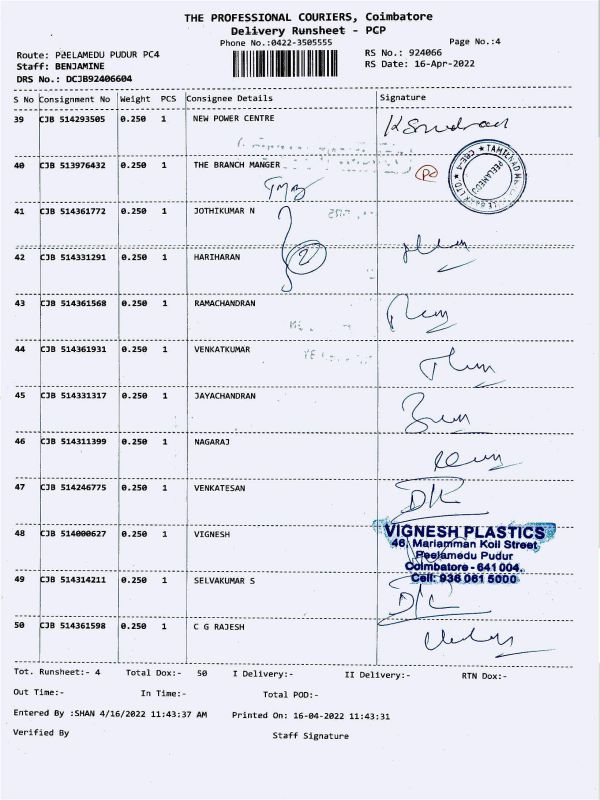 THE PROFESSIONAL COURIERS, Coimbatore
Delivery Runsheet - PCP
Phone No.:0422-3505555
Page No.:4
Route: PEELAMEDU PUDUR PC4
RS No.: 924066
Staff: BENJAMINE
RS Date: 16-Apr-2022
DRS No.: DCJB92406604
S No Consignment No Weight PCS Consignee Details Signature
39 CJB 514293505 0.250 1 NEW POWER CENTRE
40 CJB 513976432 0.250 1 THE BRANCH MANGER
TMB
41 CJB 514361772 0.250 1 JOTHIKUMAR N
42 CJB 514331291 0.250 1 HARIHARAN
2
43 CJB 514361568 0.250 1 RAMACHANDRAN
44 CJB 514361931 0.250 1 VENKATKUMAR
45 CJB 514331317 0.250 1 JAYACHANDRAN
46 CJB 514311399 0.250 1 NAGARAJ
47 CJB 514246775 0.250 1 VENKATESAN
48 CJB 514000627 0.250 1 VIGNESH
VIGNESH PLASTICS
46, Mariamman Koil Street
Peelamedu Pudur
Coimbatore - 641 004.
Cell: 936 061 5000
49 CJB 514314211 0.250 1 SELVAKUMAR S
50 CJB 514361598 0.250 1 C G RAJESH
Tot. Runsheet:- 4 Total Dox:- 50 I Delivery:- II Delivery:- RTN Dox:-
Out Time:- In Time:- Total POD:-
Entered By :SHAN 4/16/2022 11:43:37 AM Printed On: 16-04-2022 11:43:31
Verified By Staff Signature